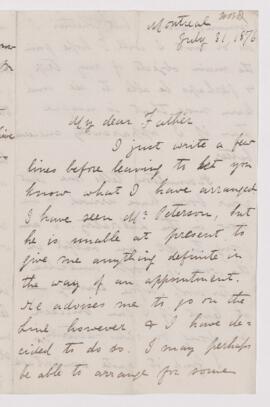 Montreal
July 31, 1876
My dear Father
I just write a few
lines before leaving to let you
know what I have arranged
I have seen Mr. Peterson, but
he is unable at present to
give me anything definite in
the way of an appointment.
He advises me to go on the
line however & I have de-
cided to do so. I may perhaps
be able to arrange for some